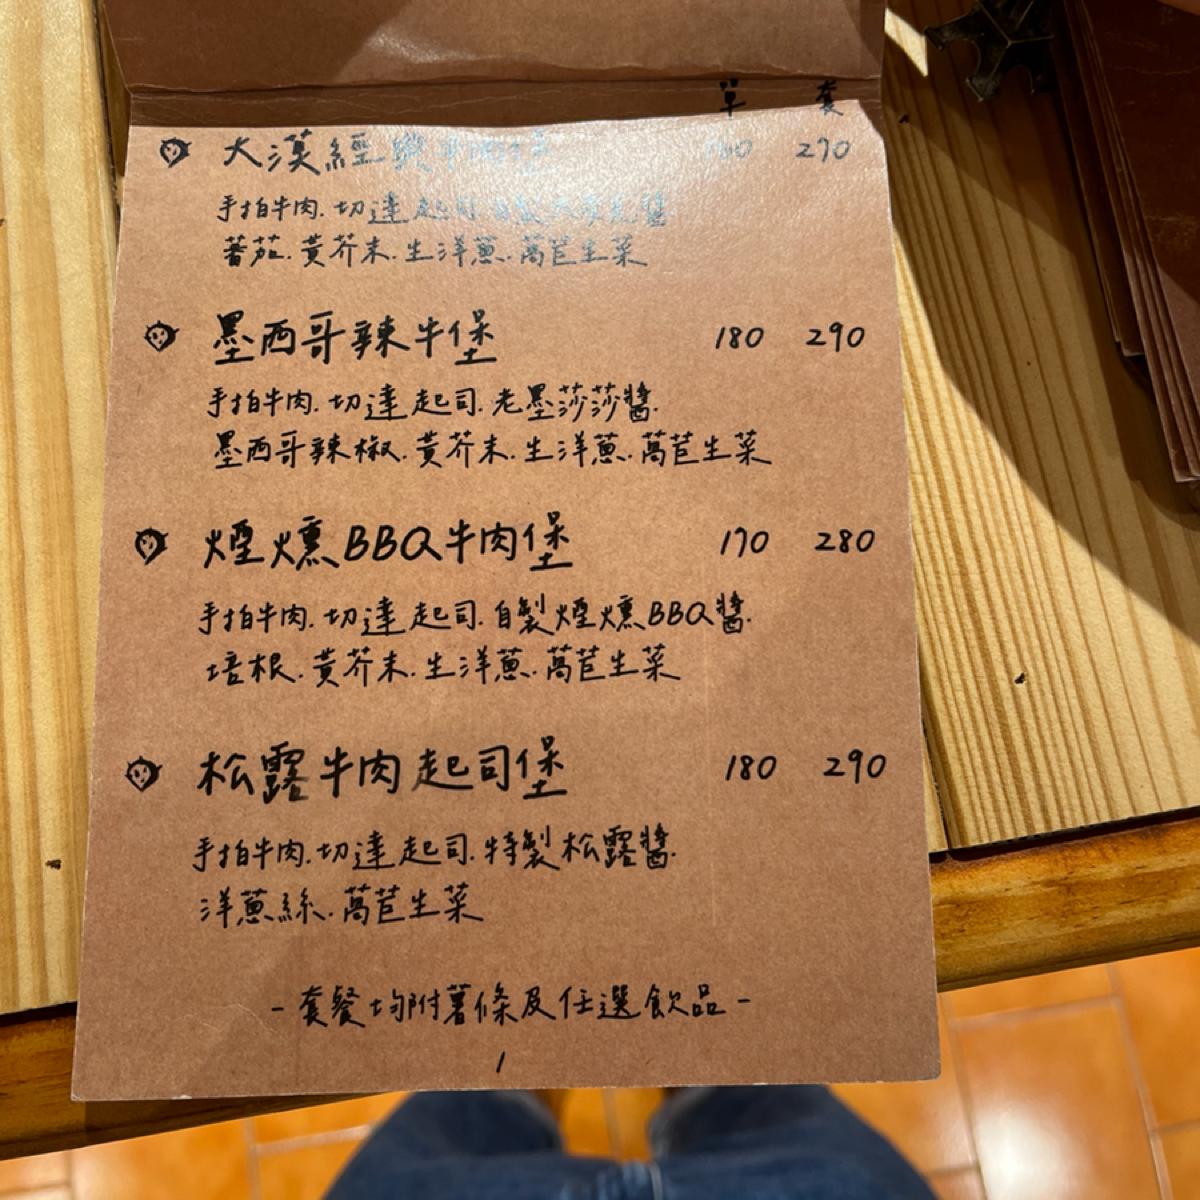 單 套
大漠經典牛肉堡 160 270
手拍牛肉.切達起司.自製大漠堡醬
蕃茄.黃芥末.生洋蔥.萵苣生菜
墨西哥辣牛堡 180 290
手拍牛肉.切達起司.老墨莎莎醬.
墨西哥辣椒.黃芥末.生洋蔥.萵苣生菜
煙燻BBQ牛肉堡 170 280
手拍牛肉.切達起司.自製煙燻BBQ醬.
培根.黃芥末.生洋蔥.萵苣生菜
松露牛肉起司堡 180 290
手拍牛肉.切達起司.特製松露醬.
洋蔥絲.萵苣生菜
- 套餐均附薯條及任選飲品 -
1